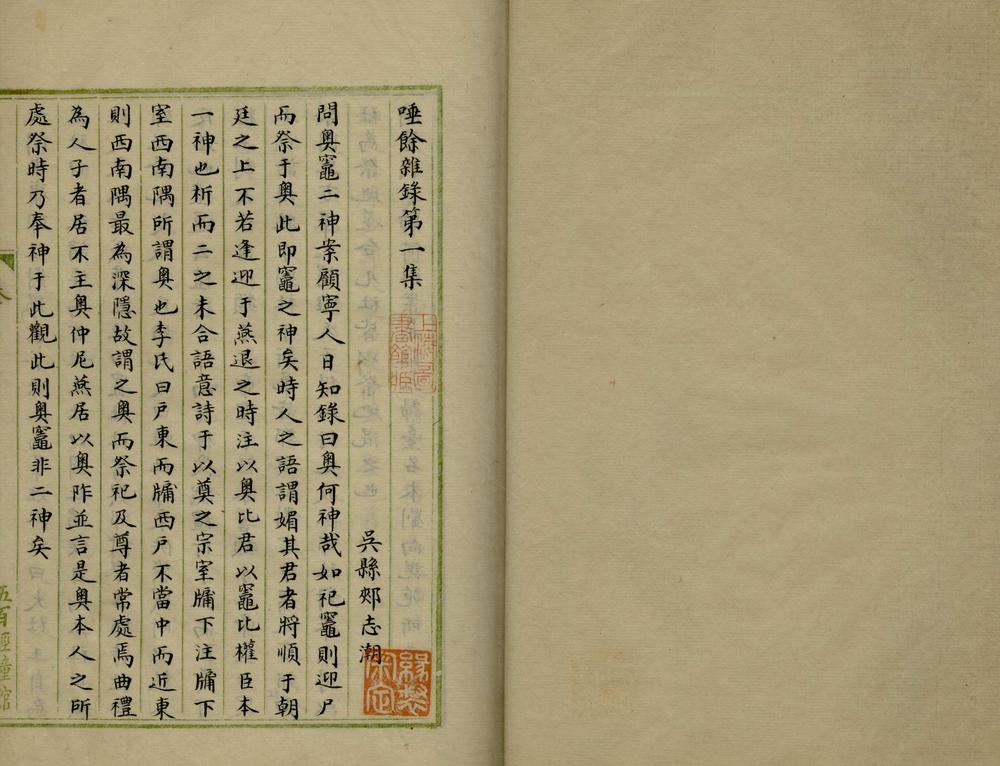 唾餘雜錄第一集
吳縣鄭志潮
問奧竈二神案顧寧人日知錄曰奧何神哉如祀竈則迎尸
而祭于奧此即竈之神矣時人之語謂媚其君者將順于朝
廷之上不若逢迎于燕退之時注以奧比君以竈比權臣本
一神也析而二之未合語意詩于以奠之宗室牖下注牖下
室西南隅所謂奧也李氏曰戶東而牖西戶不當中而近東
則西南隅最為深隱故謂之奧而祭祀及尊者常處焉曲禮
為人子者居不主奧仲尼燕居以奧阼並言是奧本人之所
處祭時乃奉神于此觀此則奧竈非二神矣
五百經幢館